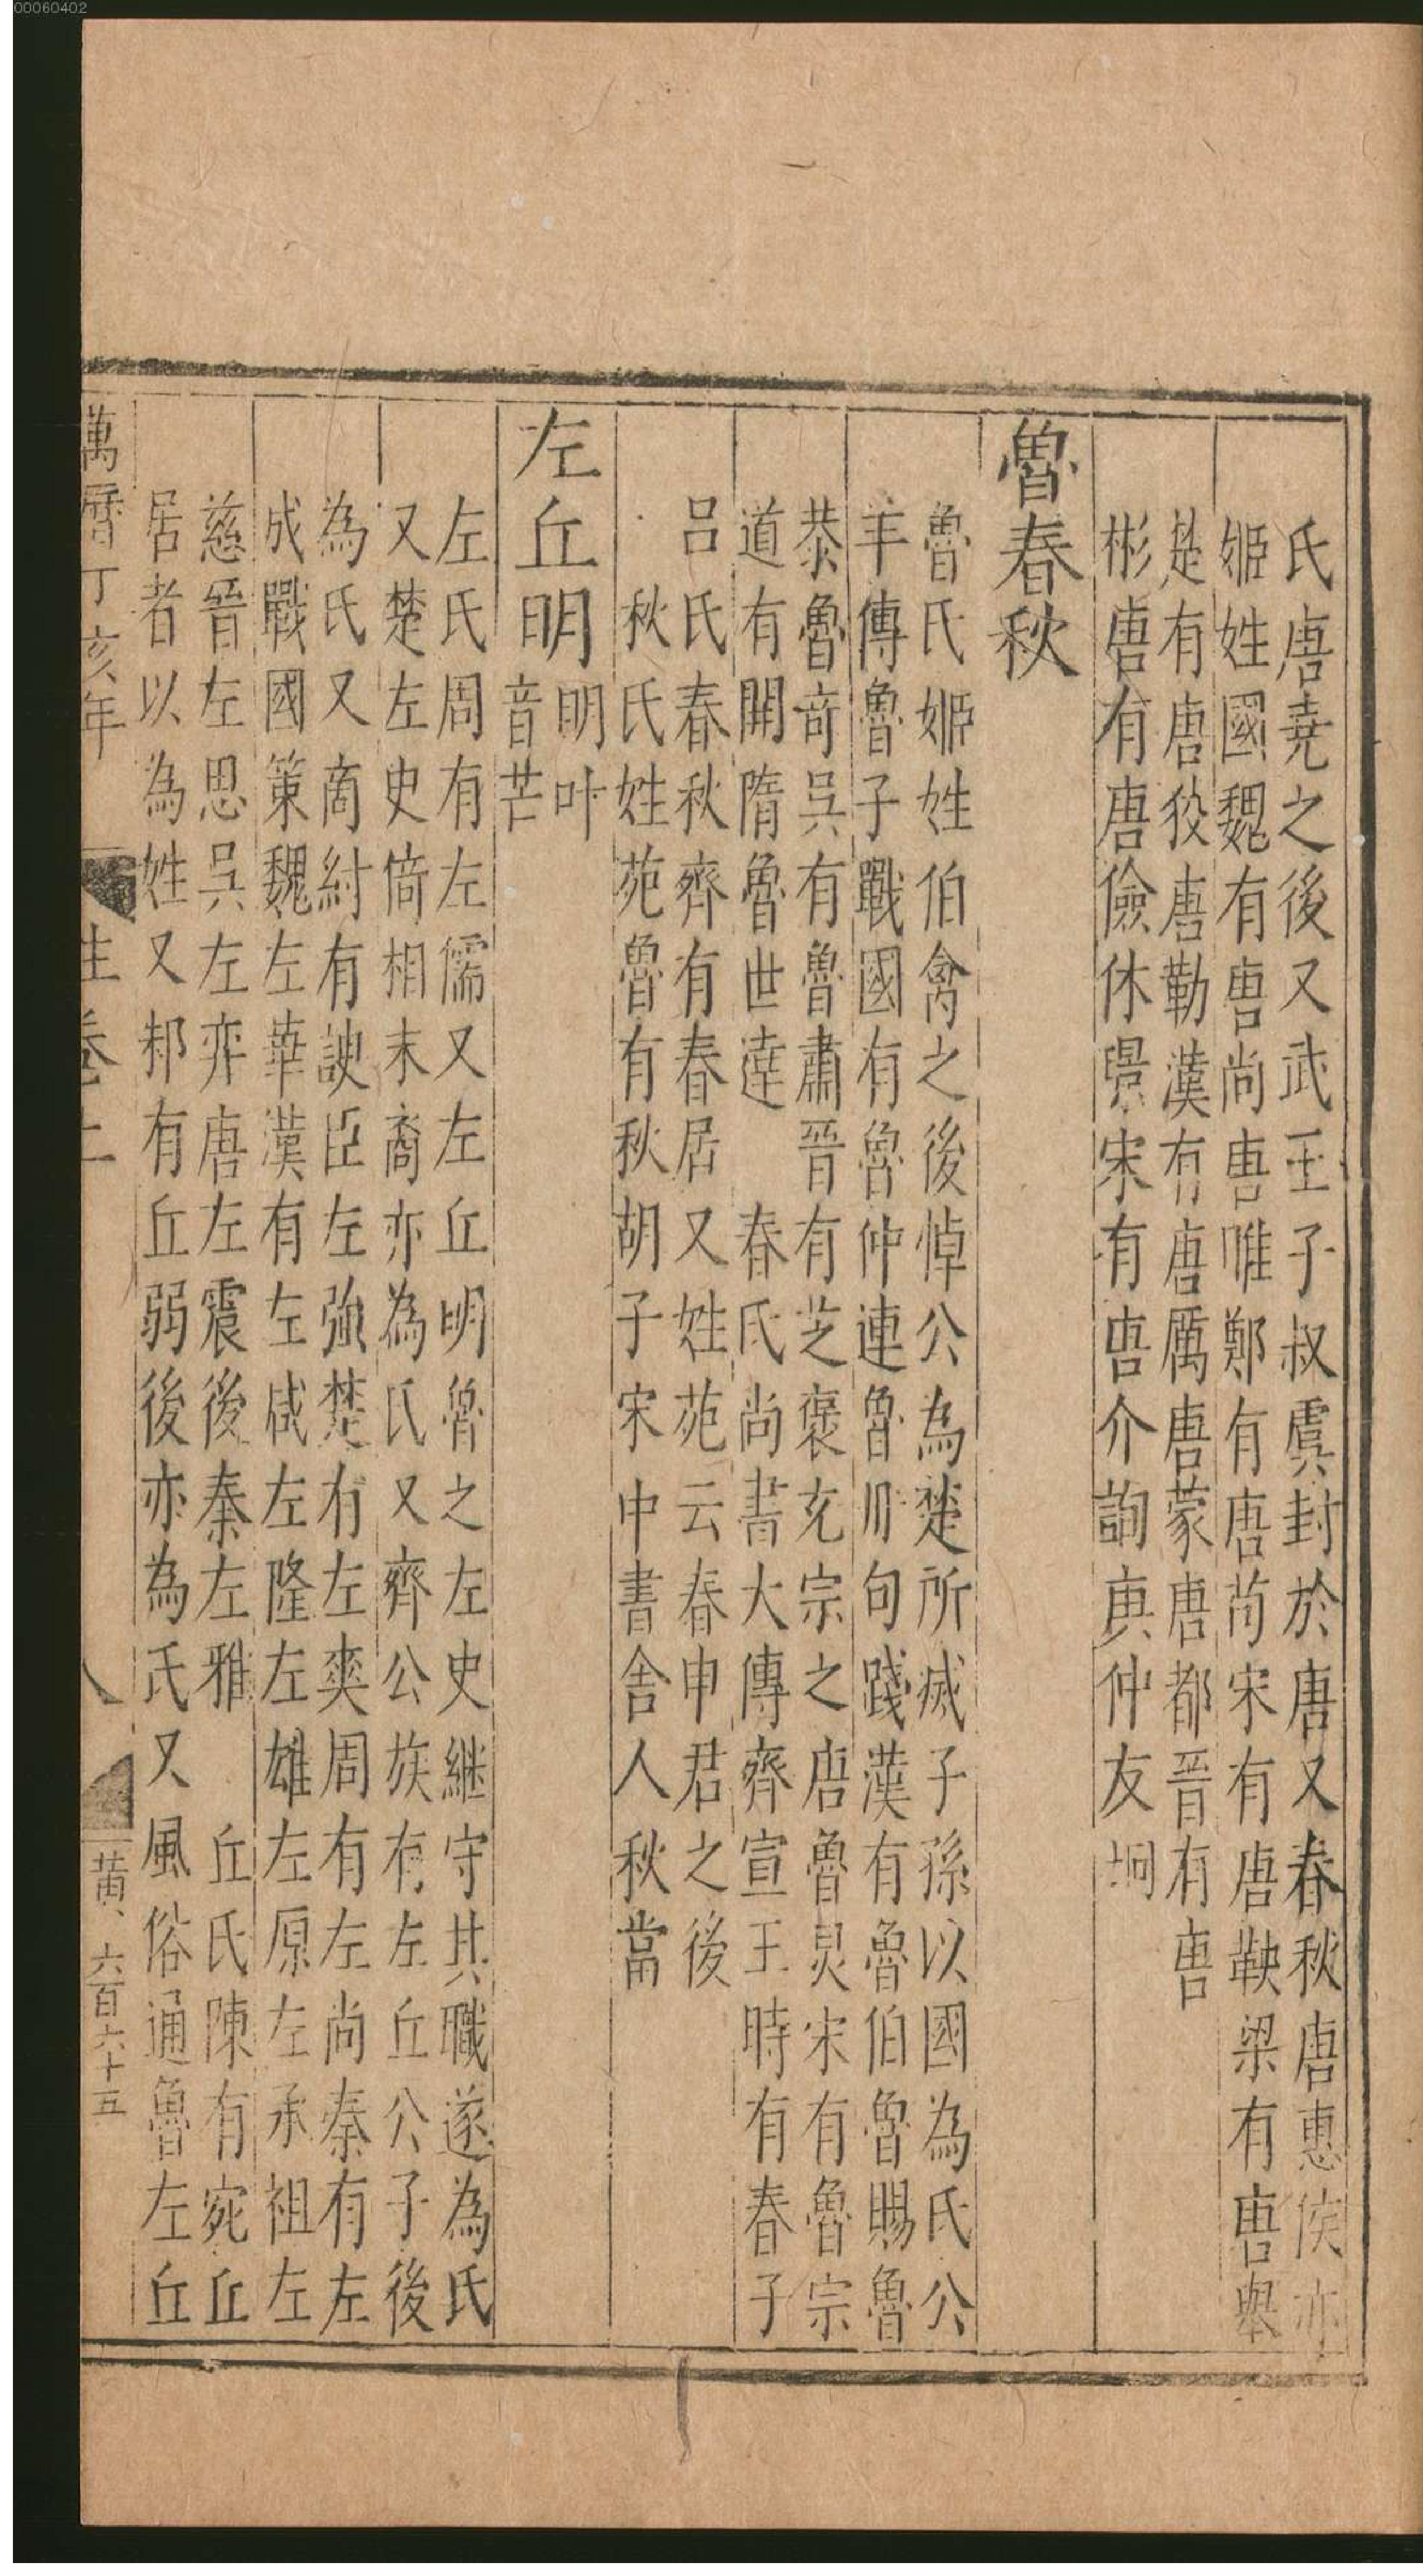 00060402
氏唐堯之後又武王子叔虞封於唐又春秋唐惠侯亦
姬姓國魏有唐尚唐唯鄭有唐茍宋有唐鞅梁有唐舉
楚有唐狡唐勒漢有唐厲唐蒙唐都晉有唐
彬唐有唐儉休璟宋有唐介詢庚仲友坰
魯春秋
魯氏姬姓伯禽之後悼公為楚所滅子孫以國為氏公
羊傳魯子戰國有魯仲連魯川句踐漢有魯伯魯賜魯
恭魯奇吳有魯肅晉有芝褒充宗之唐魯炅宋有魯宗
道有開隋魯世達 春氏尚書大傳齊宣王時有春子
呂氏春秋齊有春居又姓苑云春申君之後
秋氏姓苑魯有秋胡子宋中書舍人秋當
左丘明明叶音芒
左氏周有左儒又左丘明魯之左史継守其職遂為氏
又楚左史倚相末裔亦為氏又齊公族有左丘公子後
為氏又商紂有諛臣左強楚有左奭周有左尚秦有左
成戰國策魏左華漢有左咸左隆左雄左原左承祖左
慈晉左思吳左弈唐左震後秦左雅 丘氏陳有宛丘
居者以為姓又邾有丘弱後亦為氏又風俗通魯左丘
萬曆丁亥年 生卷上 八 黃 六百六十五